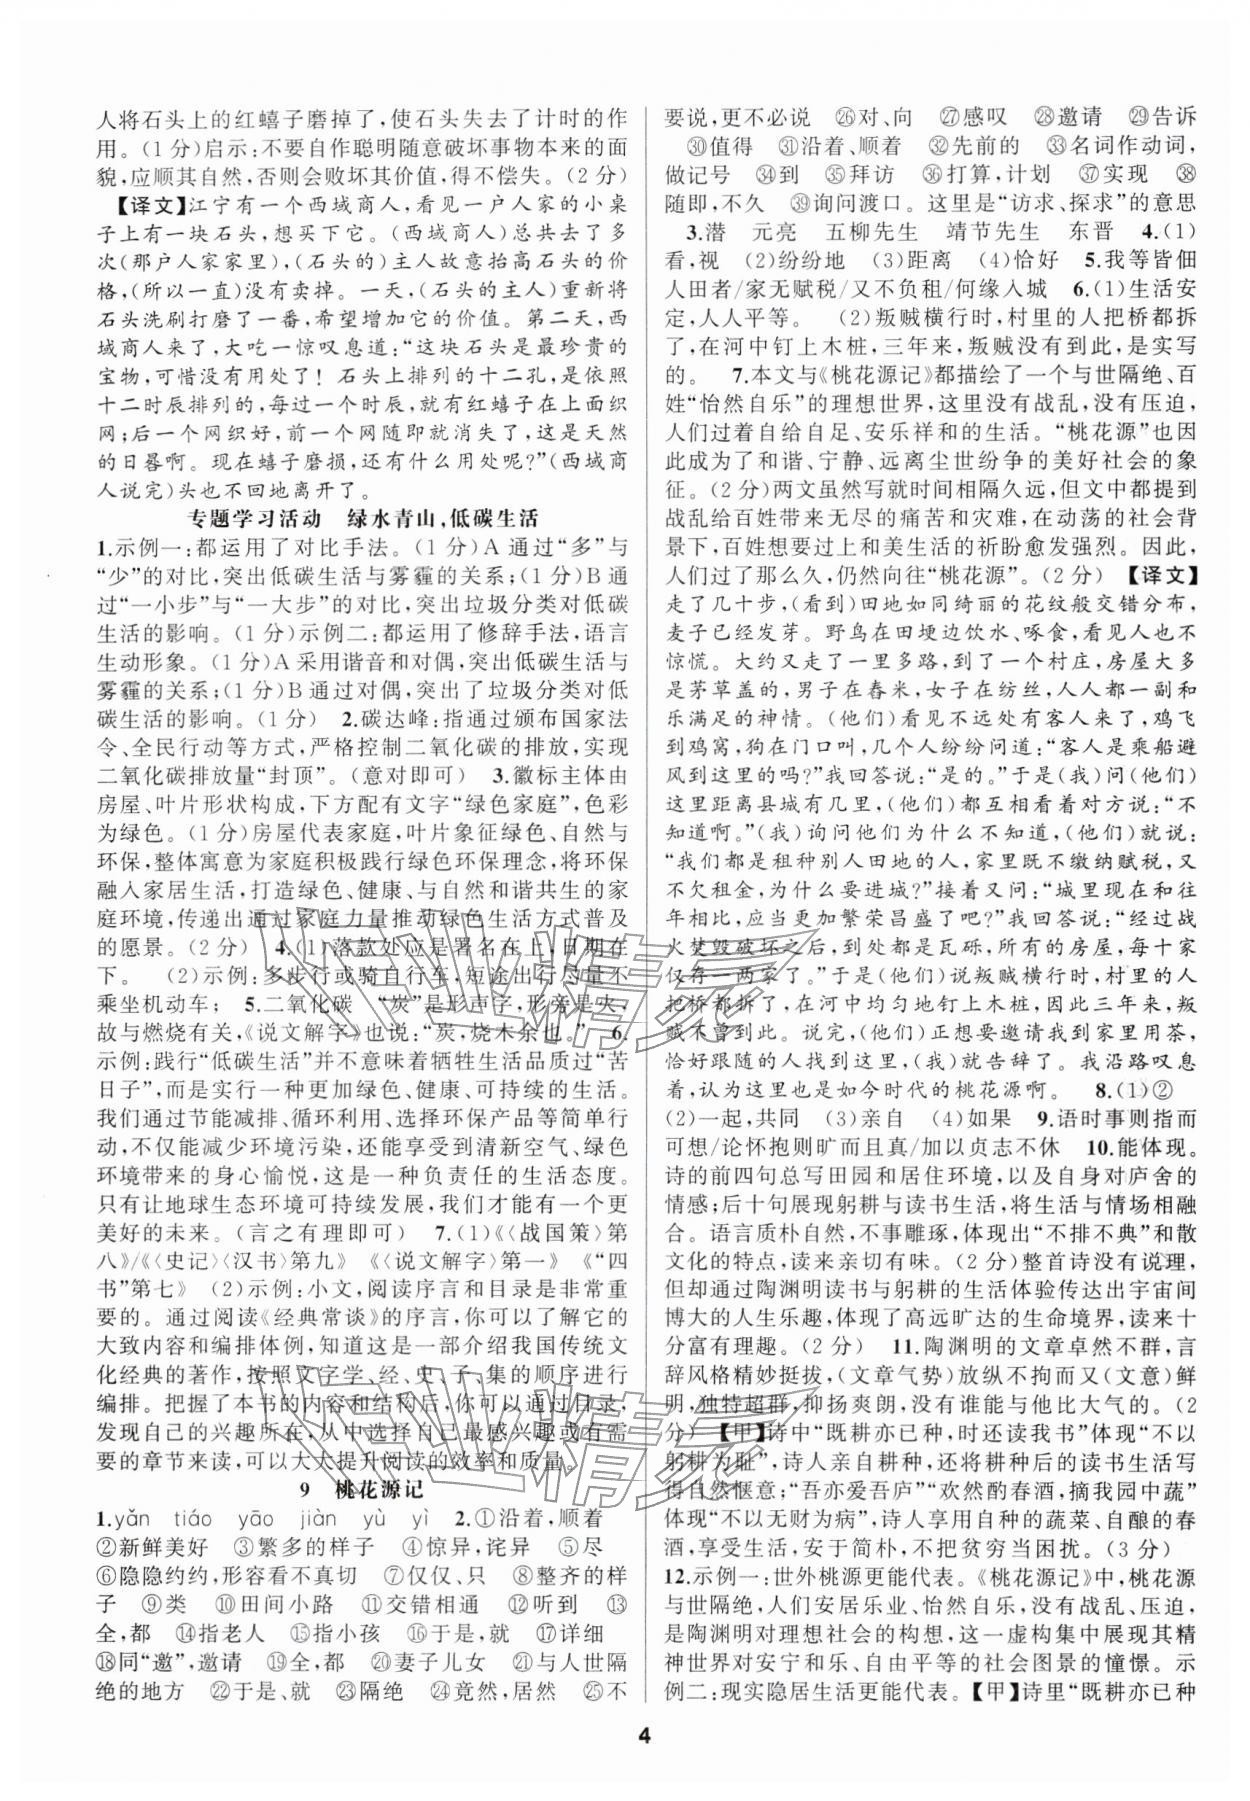 人将石头上的红蟢子磨掉了,使石头失去了计时的作
用。(1分)启示:不要自作聪明随意破坏事物本来的面
貌,应顺其自然,否则会败坏其价值,得不偿失。(2分)
【译文】江宁有一个西域商人,看见一户人家的小桌
子上有一块石头,想买下它。(西域商人)去了多
次(那户人家家里),(石头的)主人故意抬高石头的价
格,(所以一直)没有卖掉。一天,(石头的主人)重新将
石头洗刷打磨了一番,希望增加它的价值。第二天,西
域商人来了,大吃一惊叹息道:“这块石头是最珍贵的
宝物,可惜没有用处了!石头上排列的十二孔,是依照
十二时辰排列的,每过一个时辰,就有红蟢子在上面织
网;后一个网织好,前一个网随即就消失了,这是天然
的日晷啊。现在蟢子磨损,还有什么用处呢?”(西域商
人说完)头也不回地离开了。
专题学习活动 绿水青山,低碳生活
1.示例一:都运用了对比手法。(1分)A通过“多”与
“少”的对比,突出低碳生活与雾霾的关系;(1分)B通
过“一小步”与“一大步”的对比,突出垃圾分类对低碳
生活的影响。(1分)示例二:都运用了修辞手法,语言
生动形象。(1分)A采用谐音和对偶,突出低碳生活与
雾霾的关系;(1分)B通过对偶,突出了垃圾分类对低
碳生活的影响。(1分) 2.碳达峰:指通过颁布国家法
令、全民行动等方式,严格控制二氧化碳的排放,实现
二氧化碳排放量“封顶”。(意对即可) 3.徽标主体由
房屋、叶片形状构成,下方配有文字“绿色家庭”,色彩
为绿色。(1分)房屋代表家庭,叶片象征绿色、自然与
环保,整体寓意为家庭积极践行绿色环保理念,将环保
融入家居生活,打造绿色、健康、与自然和谐共生的家
庭环境,传递出通过家庭力量推动绿色生活方式普及
的愿景。(2分) 4.(1)落款处应是署名在上,日期在
下。 (2)示例:多步行或骑自行车,短途出行尽量不
乘坐机动车; 5.二氧化碳 “炭”是形声字,形旁是火,
故与燃烧有关,《说文解字》也说:“炭,烧木余也。” 6.
示例:践行“低碳生活”并不意味着牺牲生活品质过“苦
日子”,而是实行一种更加绿色、健康、可持续的生活。
我们通过节能减排、循环利用、选择环保产品等简单行
动,不仅能减少环境污染,还能享受到清新空气、绿色
环境带来的身心愉悦,这是一种负责任的生活态度。
只有让地球生态环境可持续发展,我们才能有一个更
美好的未来。(言之有理即可) 7.(1)《〈战国策〉第
八》/《〈史记〉〈汉书〉第九》 《〈说文解字〉第一》 《“四
书”第七》 (2)示例:小文,阅读序言和目录是非常重
要的。通过阅读《经典常谈》的序言,你可以了解它的
大致内容和编排体例,知道这是一部介绍我国传统文
化经典的著作,按照文字学、经、史、子、集的顺序进行
编排。把握了本书的内容和结构后,你可以通过目录,
发现自己的兴趣所在,从中选择自己最感兴趣或有需
要的章节来读,可以大大提升阅读的效率和质量。
9 桃花源记
1.yǎn tiáo yāo jiàn yù yì 2.①沿着,顺着
②新鲜美好 ③繁多的样子 ④惊异,诧异 ⑤尽
⑥隐隐约约,形容看不真切 ⑦仅仅、只 ⑧整齐的样
子 ⑨类 ⑩田间小路 ⑪交错相通 ⑫听到 ⑬
全,都 ⑭指老人 ⑮指小孩 ⑯于是,就 ⑰详细
⑱同“邀”,邀请 ⑲全,都 ⑳妻子儿女 ㉑与人世隔
绝的地方 ㉒于是、就 ㉓隔绝 ㉔竟然,居然 ㉕不
要说,更不必说 ㉖对、向 ㉗感叹 ㉘邀请 ㉙告诉
㉚值得 ㉛沿着、顺着 ㉜先前的 ㉝名词作动词,
做记号 ㉞到 ㉟拜访 ㊱打算,计划 ㊲实现 ㊳
随即,不久 ㊴询问渡口。这里是“访求、探求”的意思
3.潜 元亮 五柳先生 靖节先生 东晋 4.(1)
看,视 (2)纷纷地 (3)距离 (4)恰好 5.我等皆佃
人田者/家无赋税/又不负租/何缘入城 6.(1)生活安
定,人人平等。 (2)叛贼横行时,村里的人把桥都拆
了,在河中钉上木桩,三年来,叛贼没有到此,是实写
的。 7.本文与《桃花源记》都描绘了一个与世隔绝、百
姓“怡然自乐”的理想世界,这里没有战乱,没有压迫,
人们过着自给自足、安乐祥和的生活。“桃花源”也因
此成为了和谐、宁静、远离尘世纷争的美好社会的象
征。(2分)两文虽然写就时间相隔久远,但文中都提到
战乱给百姓带来无尽的痛苦和灾难,在动荡的社会背
景下,百姓想要过上和美生活的祈盼愈发强烈。因此,
人们过了那么久,仍然向往“桃花源”。(2分) 【译文】
走了几十步,(看到)田地如同绮丽的花纹般交错分布,
麦子已经发芽。野鸟在田埂边饮水、啄食,看见人也不
惊慌。大约又走了一里多路,到了一个村庄,房屋大多
是茅草盖的,男子在舂米,女子在纺丝,人人都一副和
乐满足的神情。(他们)看见不远处有客人来了,鸡飞
到鸡窝,狗在门口叫,几个人纷纷问道:“客人是乘船避
风到这里的吗?”我回答说:“是的。”于是(我)问(他们)
这里距离县城有几里,(他们)都互相看着对方说:“不
知道啊。”(我)询问他们为什么不知道,(他们)就说:
“我们都是租种别人田地的人,家里既不缴纳赋税,又
不欠租金,为什么要进城?”接着又问:“城里现在和往
年相比,应当更加繁荣昌盛了吧?”我回答说:“经过战
火焚毁破坏之后,到处都是瓦砾,所有的房屋,每十家
仅存一两家了。”于是(他们)说叛贼横行时,村里的人
把桥都拆了,在河中均匀地钉上木桩,因此三年来,叛
贼不曾到此。说完,(他们)正想要邀请我到家里用茶,
恰好跟随的人找到这里,(我)就告辞了。我沿路叹息
着,认为这里也是如今时代的桃花源啊。 8.(1)②
(2)一起,共同 (3)亲自 (4)如果 9.语时事则指而
可想/论怀抱则旷而且真/加以贞志不休 10.能体现。
诗的前四句总写田园和居住环境,以及自身对庐舍的
情感;后十句展现躬耕与读书生活,将生活与情场相融
合。语言质朴自然,不事雕琢,体现出“不排不典”和散
文化的特点,读来亲切有味。(2分)整首诗没有说理,
但却通过陶渊明读书与躬耕的生活体验传达出宇宙间
博大的人生乐趣,体现了高远旷达的生命境界,读来十
分富有理趣。(2分) 11.陶渊明的文章卓然不群,言
辞风格精妙挺拔,(文章气势)放纵不拘而又(文意)鲜
明,独特超群,抑扬爽朗,没有谁能与他比大气的。(2
分) 【甲】诗中“既耕亦已种,时还读我书”体现“不以
躬耕为耻”,诗人亲自耕种,还将耕种后的读书生活写
得自然惬意;“吾亦爱吾庐”“欢然酌春酒,摘我园中蔬”
体现“不以无财为病”,诗人享用自种的蔬菜、自酿的春
酒,享受生活,安于简朴,不把贫穷当困扰。(3分)
12.示例一:世外桃源更能代表。《桃花源记》中,桃花源
与世隔绝,人们安居乐业、怡然自乐,没有战乱、压迫,
是陶渊明对理想社会的构想,这一虚构集中展现其精
神世界对安宁和乐、自由平等的社会图景的憧憬。示
例二:现实隐居生活更能代表。【甲】诗里“既耕亦已种
4